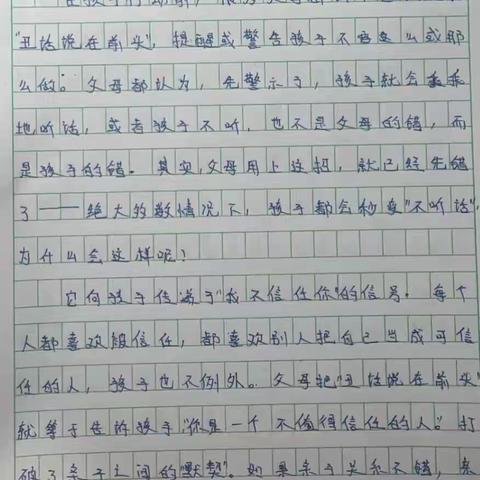 "丑话说在前头",提醒或警告孩子不容这么或那
么做。父母都认为,先警示了,孩子就会乖乖
地听话,或者孩子不听,也不是父母的错,而
是孩子的错。其实,父母用上这招,就已经先错
了——绝大多数情况下,孩子都会秒变"不听话",
为什么会这样呢?
它向孩子传递了"我不信任你"的信号。每个
人都喜欢被信任,都喜欢别人把自己当成可信
任的人,孩子也不例外。父母把"丑话说在前头"
就等于告诉孩子"你是一个不值得信任的人。"打
破了亲子之间的"默契"。如果亲子关系不错,亲